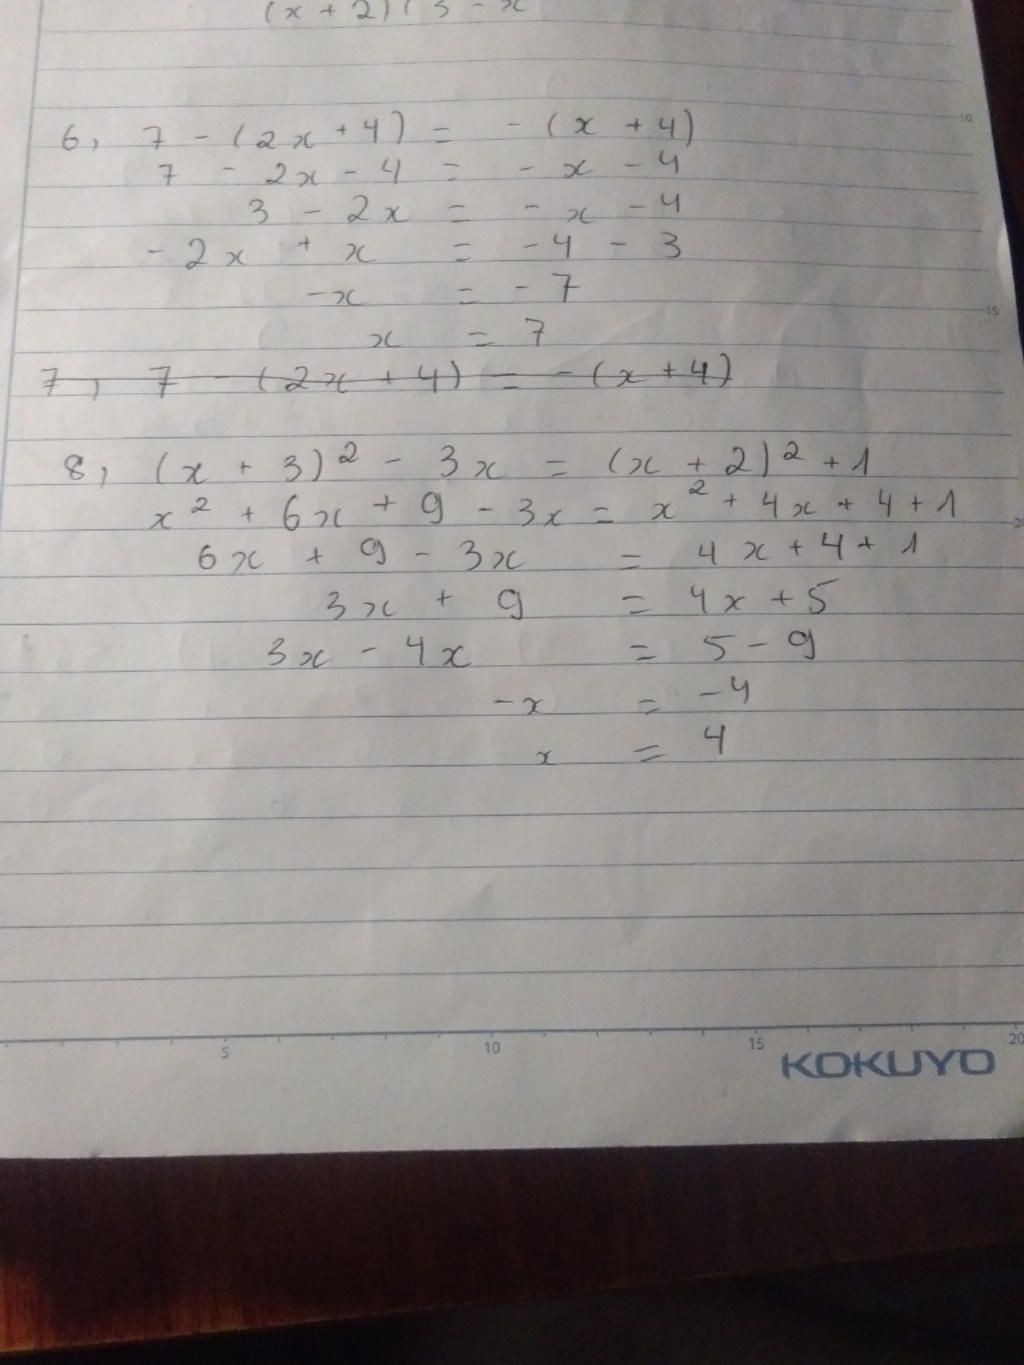 (x + 2)(3 - x
6, 7 - (2x + 4) = - (x + 4)
7 - 2x - 4 = - x - 4
3 - 2x = - x - 4
- 2x + x = - 4 - 3
-x = - 7
x = 7
7, 7 - (2x + 4) = - (x + 4)
8, (x + 3)² - 3x = (x + 2)² + 1
x² + 6x + 9 - 3x = x² + 4x + 4 + 1
6x + 9 - 3x = 4x + 4 + 1
3x + 9 = 4x + 5
3x - 4x = 5 - 9
-x = -4
x = 4
10
15
20
5 10 15 20
KOKUYO